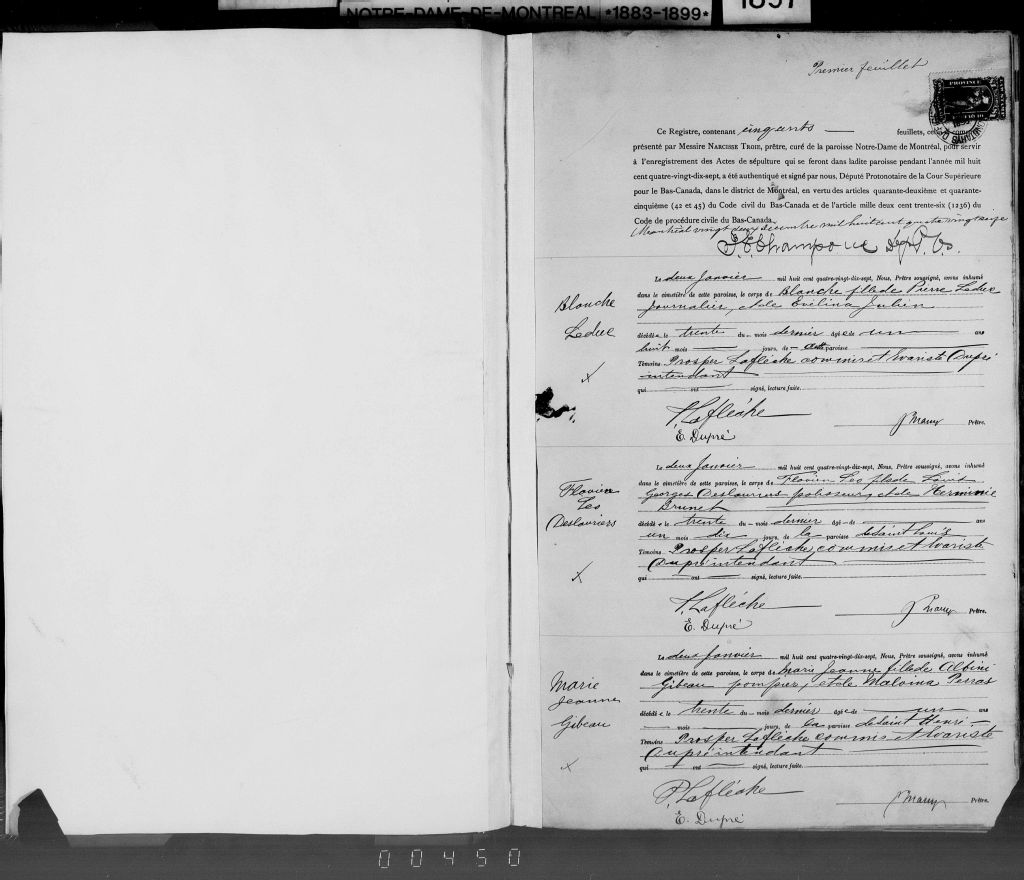 NOTRE-DAME-DE-MONTREAL *1883-1899*
1897
Premier feuillet
PROVINCE
Ce Registre, contenant cinq cents — feuillets, celui
présenté par Messire NARCISSE TROIE, prêtre, curé de la paroisse Notre-Dame de Montréal, pour servir
à l'enregistrement des Actes de sépulture qui se feront dans ladite paroisse pendant l'année mil huit
cent quatre-vingt-dix-sept, a été authentiqué et signé par nous, Député Protonotaire de la Cour Supérieure
pour le Bas-Canada, dans le district de Montréal, en vertu des articles quarante-deuxième et quarante-
cinquième (42 et 45) du Code civil du Bas-Canada et de l'article mille deux cent trente-six (1236) du
Code de procédure civile du Bas-Canada.
Montréal vingt deux décembre mil huit cent quatre vingt seize
Dep. P. C. S.
Le deux Janvier mil huit cent quatre-vingt-dix-sept, Nous, Prêtre soussigné, avons inhumé
Blanche
Leduc
dans le cimetière de cette paroisse, le corps de Blanche fille de Pierre Leduc
Journalier, et de Evélina Julien
décédée le trente du mois dernier âgée de un ans
huit mois — jours, de cette paroisse
Témoins Prosper Laflèche commis et Evariste Dupré
intendant
qui — ont — signé, lecture faite.
P. Laflèche
E. Dupré
Prêtre.
Le deux Janvier mil huit cent quatre-vingt-dix-sept, Nous, Prêtre soussigné, avons inhumé
Flavien
Leo
Deslauriers
dans le cimetière de cette paroisse, le corps de Flavien Leo fils de Louis
Georges Deslauriers polisseur, et de Herminie
Brunet
décédé le trente du mois dernier âgé de — ans
un mois dix jours, de la paroisse de Saint Louis
Témoins Prosper Laflèche, commis et Evariste
Dupré intendant
qui — ont — signé, lecture faite.
P. Laflèche
E. Dupré
Prêtre.
Le deux Janvier mil huit cent quatre-vingt-dix-sept, Nous, Prêtre soussigné, avons inhumé
Marie
Jeanne
Gibeau
dans le cimetière de cette paroisse, le corps de Marie Jeanne fille de Albini
Gibeau pompier, et de Malvina Perras
décédée le trente du mois dernier âgée de un ans
— mois — jours, de la paroisse de Saint Henri —
Témoins Prosper Laflèche commis et Evariste
Dupré intendant
qui — ont — signé, lecture faite.
P. Laflèche
E. Dupré
Prêtre.
00450